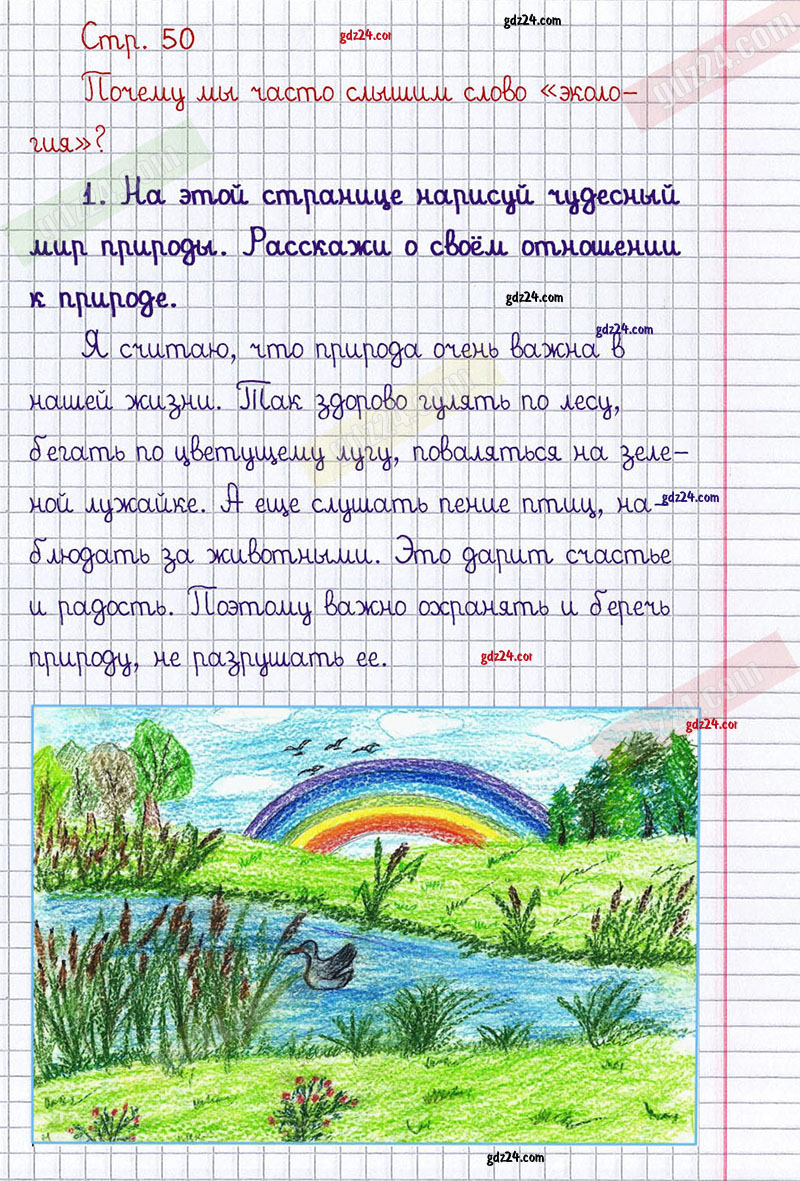 gdz24.com
Стр. 50
gdz24.com
gdz24.com
Почему мы часто слышим слово «эколо-
гия»?
gdz24.com
1. На этой странице нарисуй чудесный
мир природы. Расскажи о своём отношении
к природе.
gdz24.com
gdz24.com
Я считаю, что природа очень важна в
нашей жизни. Так здорово гулять по лесу,
gdz24.com
бегать по цветущему лугу, поваляться на зеле-
ной лужайке. А еще слушать пение птиц, на-
gdz24.com
блюдать за животными. Это дарит счастье
и радость. Поэтому важно охранять и беречь
природу, не разрушать ее.
gdz24.com
gdz24.com
gdz24.com
gdz24.com